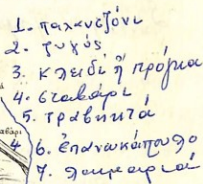 1. παλαντζόνι
2. ζυγός
3. κλειδί ἤ πρόγκα
4. σταβάρι
5. τραβηχτά
6. ἐπανωκάπουλο
7. λαιμαριά